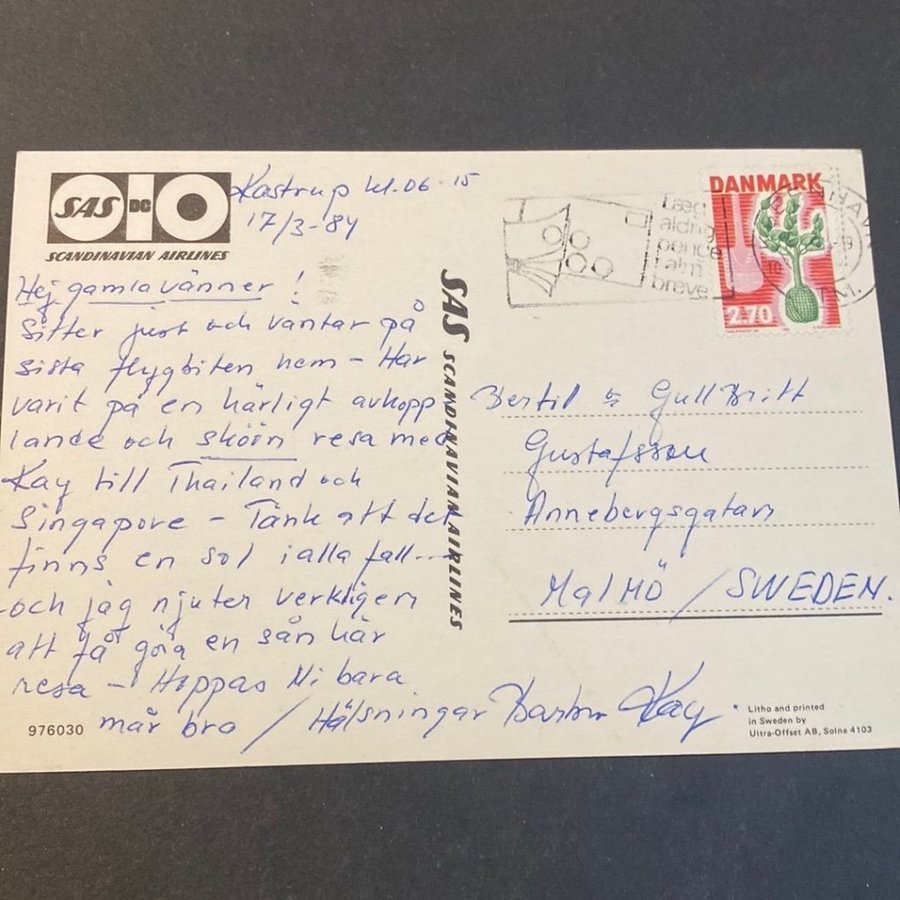 SAS DC 10
SCANDINAVIAN AIRLINES
Kastrup kl. 06-15
17/3-84
Hej gamla vänner!
Sitter just och väntar på
sista flygbiten hem - Har
varit på en härligt avkopp
lande och sköön resa med
Kay till Thailand och
Singapore - Tänk att det
finns en sol iallafall---
och jag njuter verkligen
att få göra en sån här
resa - Hoppas Ni bara
mår bra / Hälsningar Kay.
976030
SAS SCANDINAVIAN AIRLINES
Læg
aldrig
penge
i alm
breve
DANMARK
2.70
Bertil & GullBritt
Gustafsson
Annebergsgatan
MalMÖ / SWEDEN.
Litho and printed
in Sweden by
Ultra-Offset AB, Solna 4103